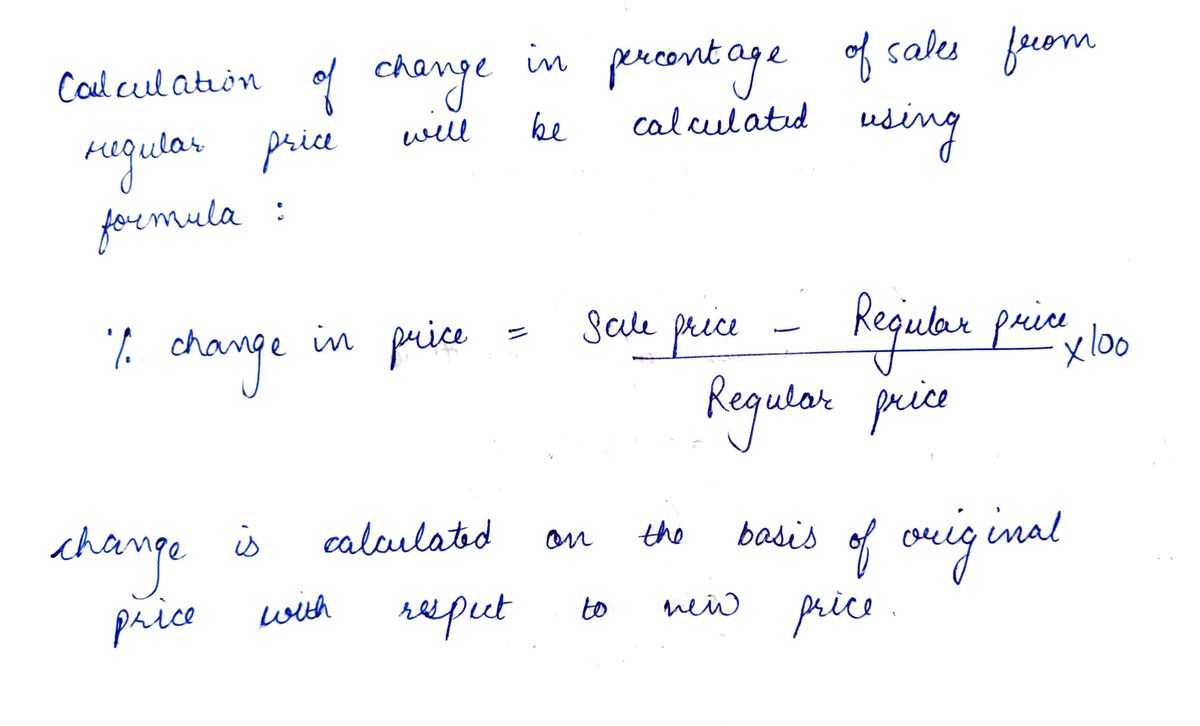 Calculation of change in percentage of sales from
regular price will be calculated using
formula :
% change in price = Sale price - Regular price x100
Regular price
change is calculated on the basis of original
price with respect to new price.